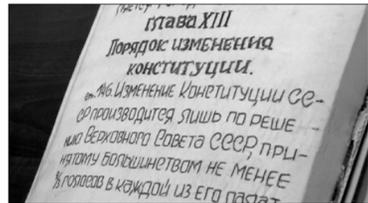 Глава XIII
Порядок изменения
конституции.
ст. 146. Изменение Конституции СС-
СР производится лишь по реше-
нию Верховного Совета СССР, при-
нятому большинством не менее
⅔ голосов в каждой из его палат